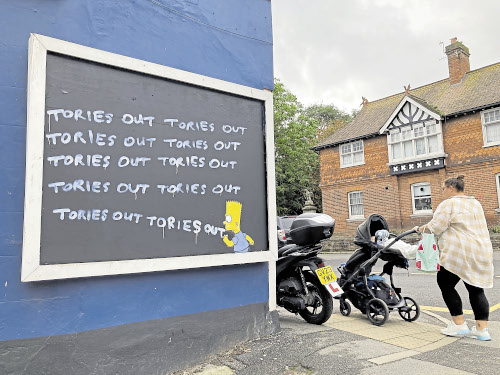 TORIES OUT TORIES OUT
TORIES OUT TORIES OUT
TORIES OUT TORIES OUT
TORIES OUT TORIES OUT
TORIES OUT TORIES OUT
L